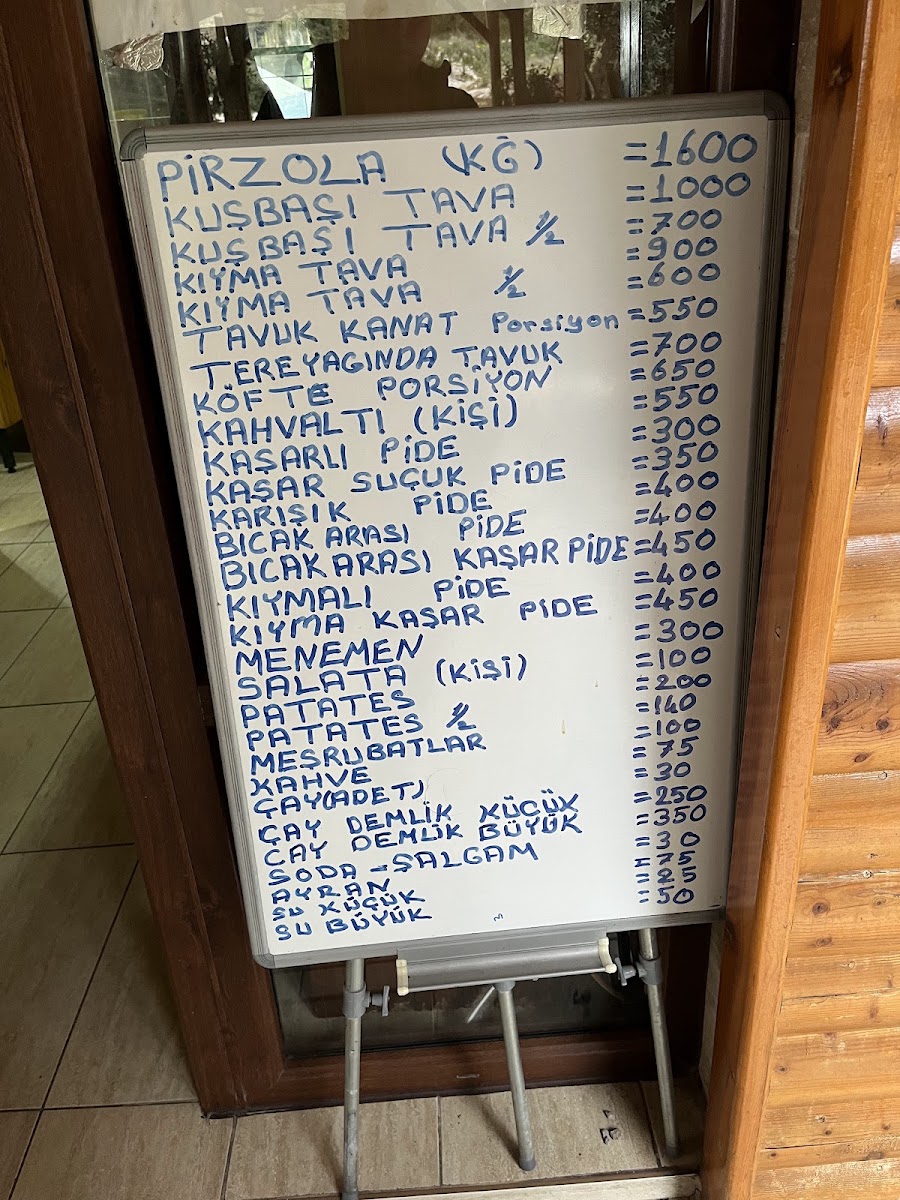 PİRZOLA (KĞ) =1600
KUŞBAŞI TAVA =1000
KUŞBAŞI TAVA 1/2 =700
KIYMA TAVA =900
KIYMA TAVA 1/2 =600
TAVUK KANAT Porsiyon =550
TEREYAGINDA TAVUK =700
KÖFTE PORSİYON =650
KAHVALTI (KİŞİ) =550
KAŞARLI PİDE =300
KAŞAR SUÇUK PİDE =350
KARIŞIK PİDE =400
BICAK ARASI PİDE =400
BICAK ARASI KAŞAR PİDE =450
KIYMALI PİDE =400
KIYMA KAŞAR PİDE =450
MENEMEN =300
SALATA (KİŞİ) =100
PATATES =200
PATATES 1/2 =140
MEŞRUBATLAR =100
KAHVE =75
ÇAY(ADET) =30
ÇAY DEMLİK KÜÇÜK =250
ÇAY DEMLİK BÜYÜK =350
SODA -ŞALGAM =30
AYRAN =75
SU KÜÇÜK =25
SU BÜYÜK =50